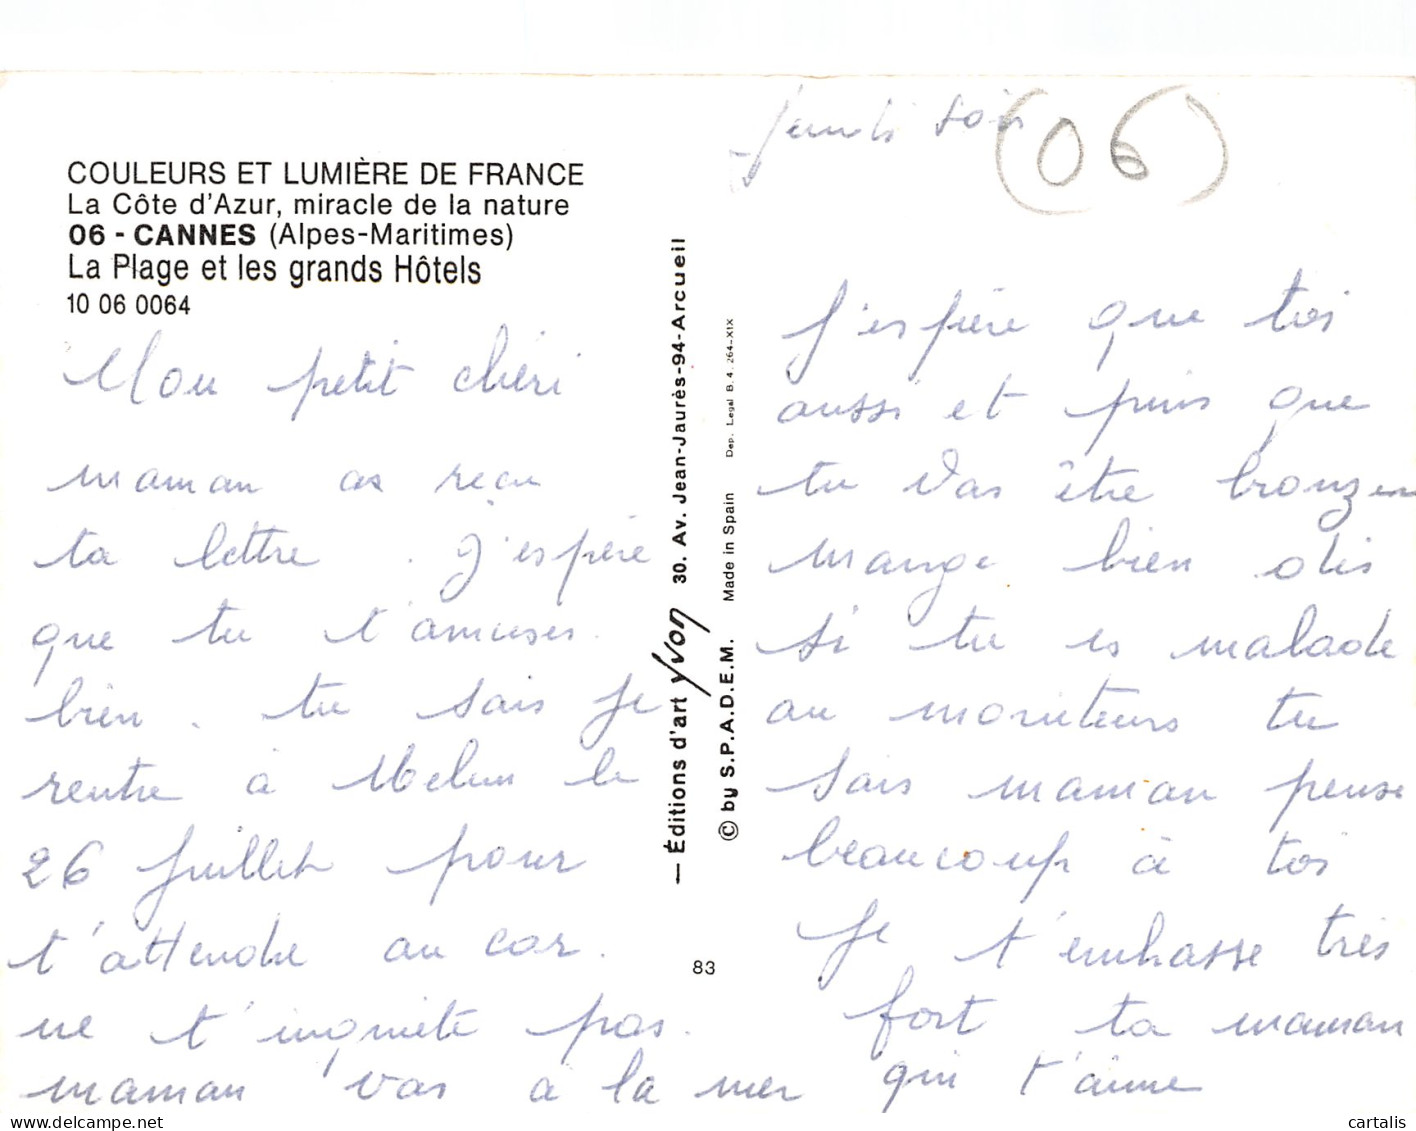 COULEURS ET LUMIÈRE DE FRANCE
La Côte d'Azur, miracle de la nature
06 - CANNES (Alpes-Maritimes)
La Plage et les grands Hôtels
10 06 0064
Mon petit chéri
maman as reçu
ta lettre . J'espère
que tu t'amuses.
bien . tu sais je
rentre à Melun le
26 juillet pour
t'attendre au car.
ne t'inquiète pas.
maman vas à la mer
— Éditions d'art yvon 30. Av. Jean-Jaurès-94-Arcueil
© by S.P.A.D.E.M. Made in Spain Dep. Legal B. 4. 264-XIX
83
jeudi soir
(06)
j'espère que toi
aussi et puis que
tu vas être bronzer
mange bien dis
si tu es malade
au moniteurs tu
sais maman pense
beaucoup à toi
je t'embrasse très
fort ta maman
qui t'aime
cartalis